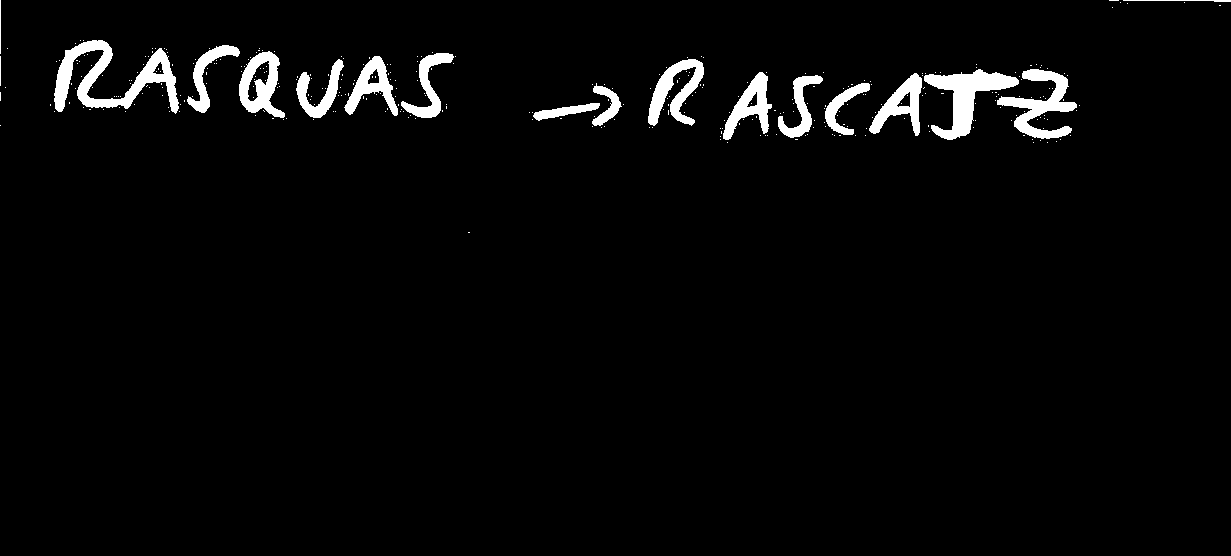 RASQUAS → RASCATZ